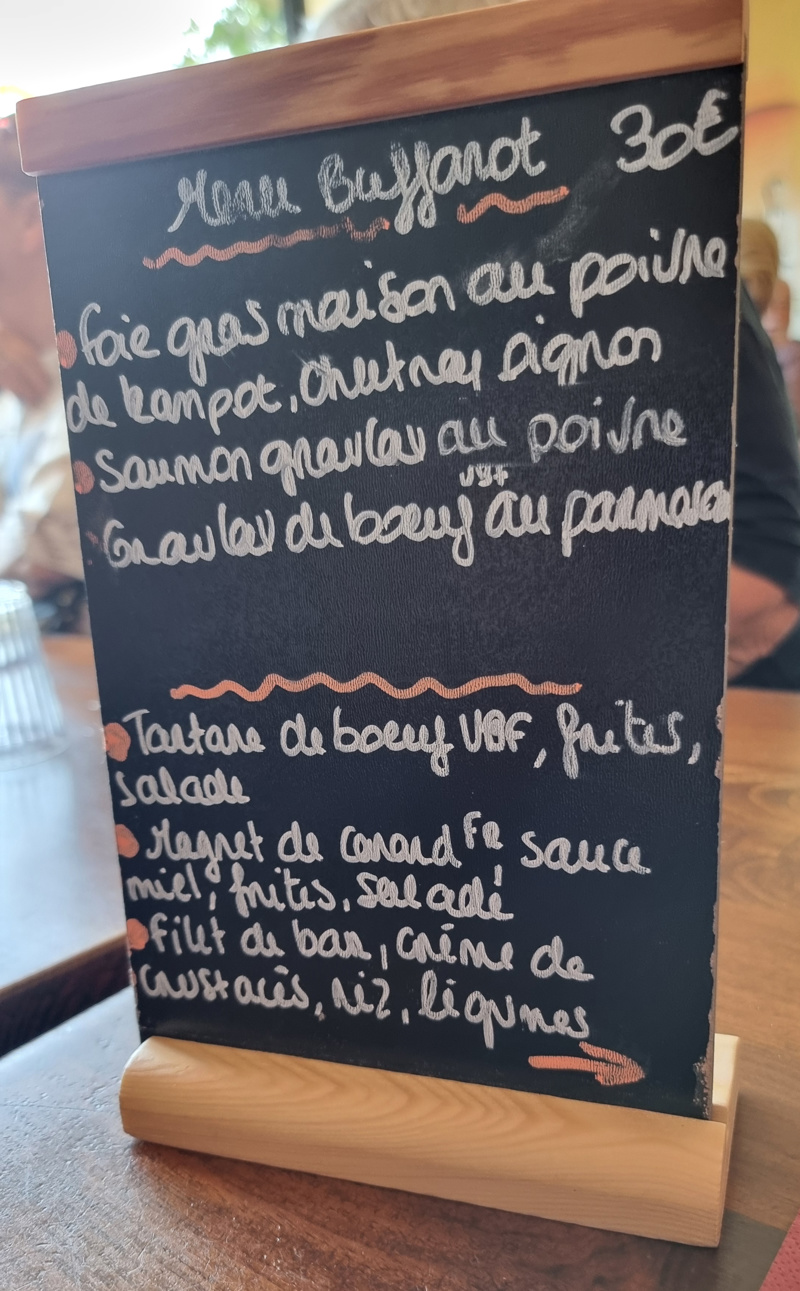 Menu Buffarot 30€
• Foie gras maison au poivre
de kampot, chutney oignon
• Saumon gravlax au poivre
VBF
Gravlax de boeuf au parmesan
• Tartare de boeuf VBF, frites,
salade
• Magret de canard FR sauce
miel, frites, salade
• Filet de bar, crème de
crustacés, riz, légumes